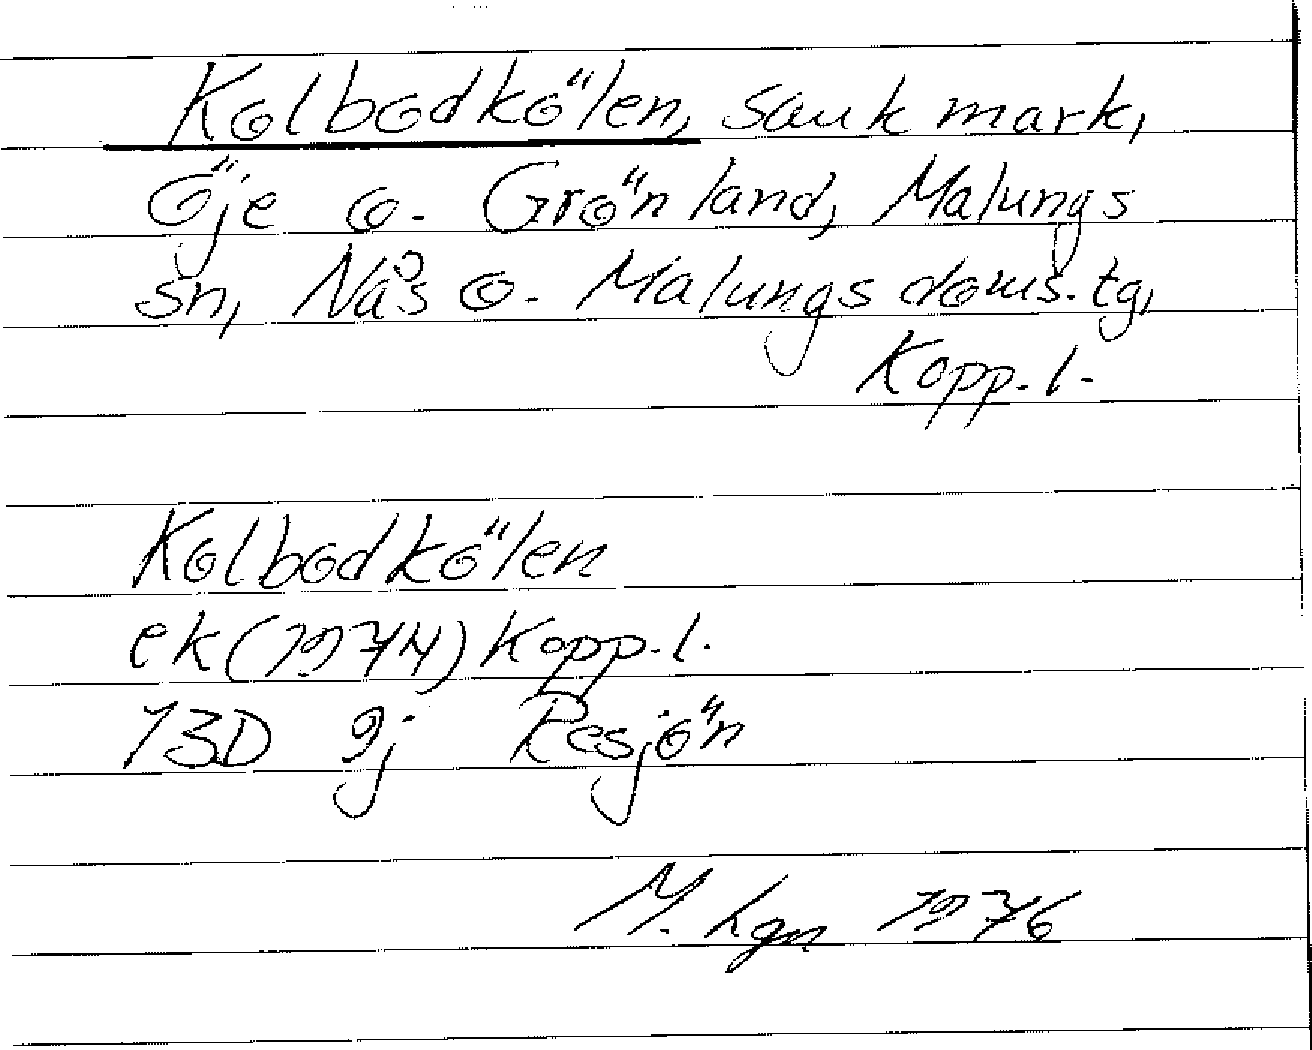 Kolbodkölen, sank mark,
Öje o. Grönland, Malungs
sn, Nås o. Malungs doms.tg,
Kopp.l.
Kolbodkölen
ek (1974) Kopp.l.
13D 9j Resjön
M. Lgn 1976